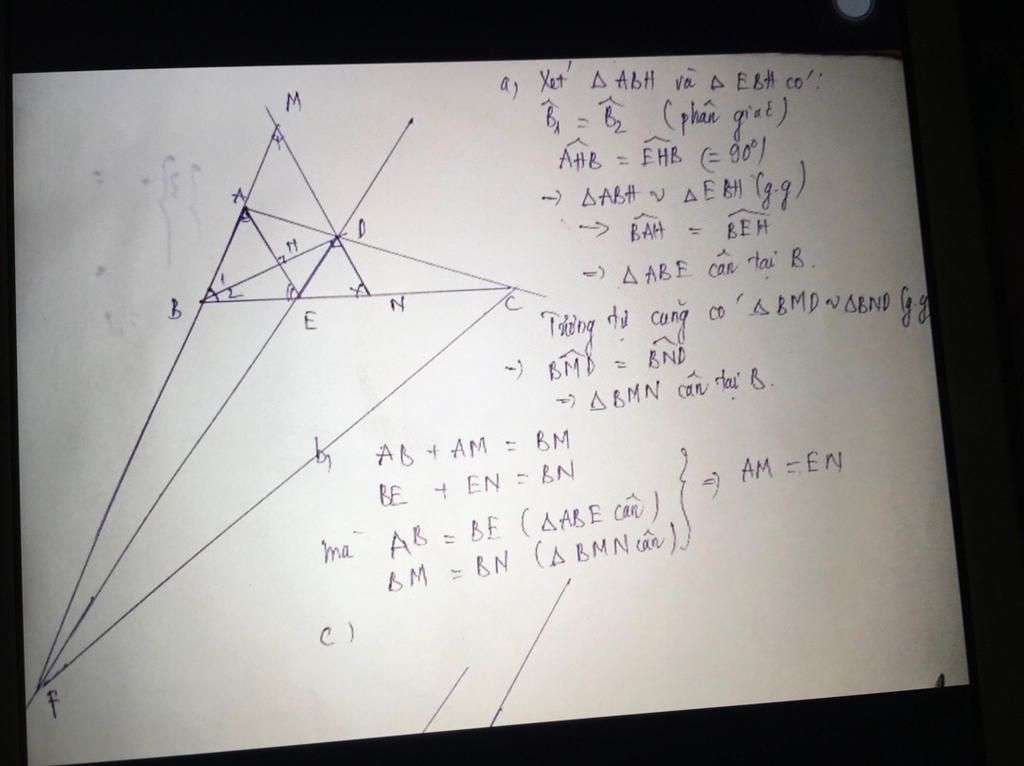 a, Xét △ ABH và △ EBH có:
B̂₁ = B̂₂ (phân giác)
AĤB = EĤB (= 90°)
→ △ABH ~ △EBH (g.g)
→ BÂH = BÊH
⇒ △ABE cân tại B.
Tương tự cũng có △BMD ~ △BND (g.g
→ BM̂D = BN̂D
⇒ △BMN cân tại B.
M
A
H
D
B
1
2
E
N
C
F
b, AB + AM = BM
BE + EN = BN
mà AB = BE (△ABE cân)
BM = BN (△BMN cân)
} ⇒ AM = EN
c)